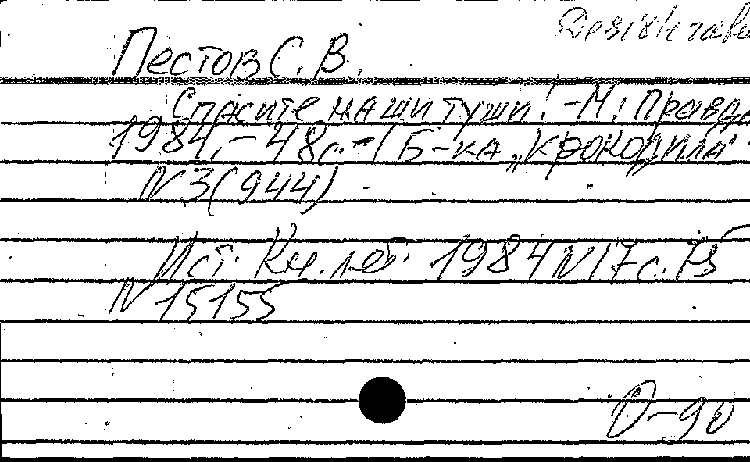 Пестов С. В.
Спасите наши туши! - М.: Правда
1984. - 48 с. - (Б-ка "Крокодила"
N 3 (944)
Ист. Кн. лет. 1984 N 17 с. 75
N 15155
О-90